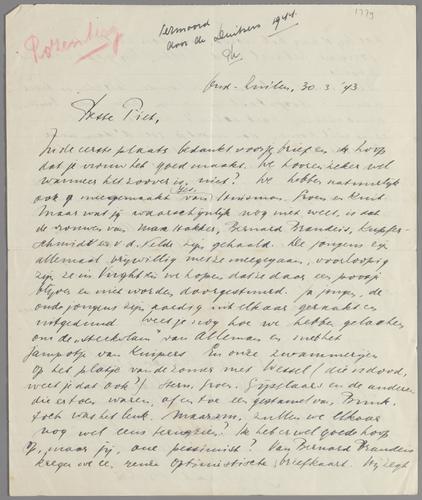 Rosenberg
Vermoord
door de Duitsers 1944
1779
Oud-Zuilen, 30.3.'43
Beste Piet,
In de eerste plaats bedankt voor je brief en de hoop
dat je vrouw het goed maakt. We hooren zeker wel
wanneer het zoover is, niet? We hebben natuurlijk
ook meegemaakt van Huisman, Groen en Kuit.
Maar wat jij waarschijnlijk nog niet weet, is dat
de vrouwen van Max Hakker, Bernard Brandeis,
Schmidt en v.d. Velde zijn gehaald. De jongens zijn
allemaal vrijwillig mee gegaan, voorloopig
zijn ze in Vught en we hopen dat ze daar een poosje
blijven en niet worden doorgestuurd. Ja jongen, de
oude jongens zijn aardig uit elkaar geraakt en
uitgedund. Weet je nog hoe we hebben gelachen
om de van Alleman en met het
jampotje van Kuipers. En onze zwammerijen
op het platje van de zomer met Wessel (die is dood,
weet je dat ook?) Stern, Groen, Gijselaard en de anderen
die er toen waren, of en toe een van Brunk.
Toch was het leuk. Maar, zullen we elkaar
nog wel eens terugzien? Ik heb er wel goede hoop
op, maar jij, oude pessimist? Van Bernard Brandeis
kregen we een optimistische briefkaart. Hij zegt